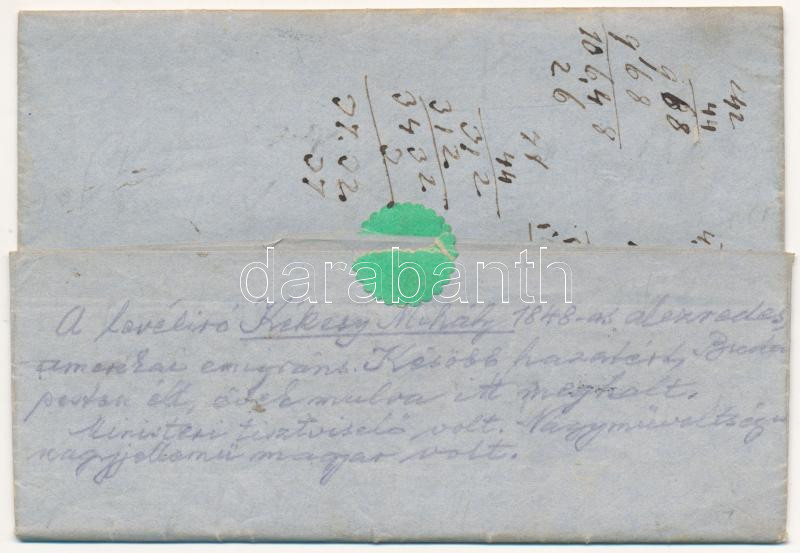 142
44
968
968
10648
26
44
312
312
3432
2
37.32
37
darabanth
A levéliró Kekesy Mihály 1848-as alezredes,
amerikai emigráns. Később hazatért, Buda
pesten élt, évek mulva itt meghalt.
Ministeri tisztviselő volt. Nagyműveltségű
nagyjellemű magyar volt.